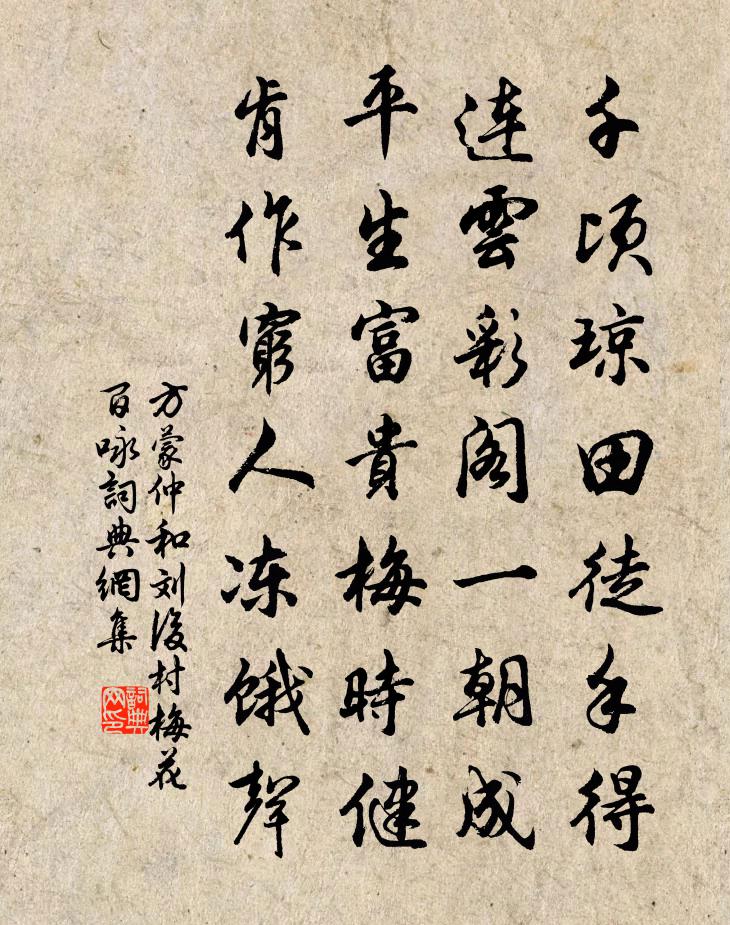 千頃琼田徒手得
連雲彩阁一朝成
平生富貴梅時健
肯作窮人冻饿聲
方蒙仲和刘後村梅花
百咏詞典網集
詞典网印